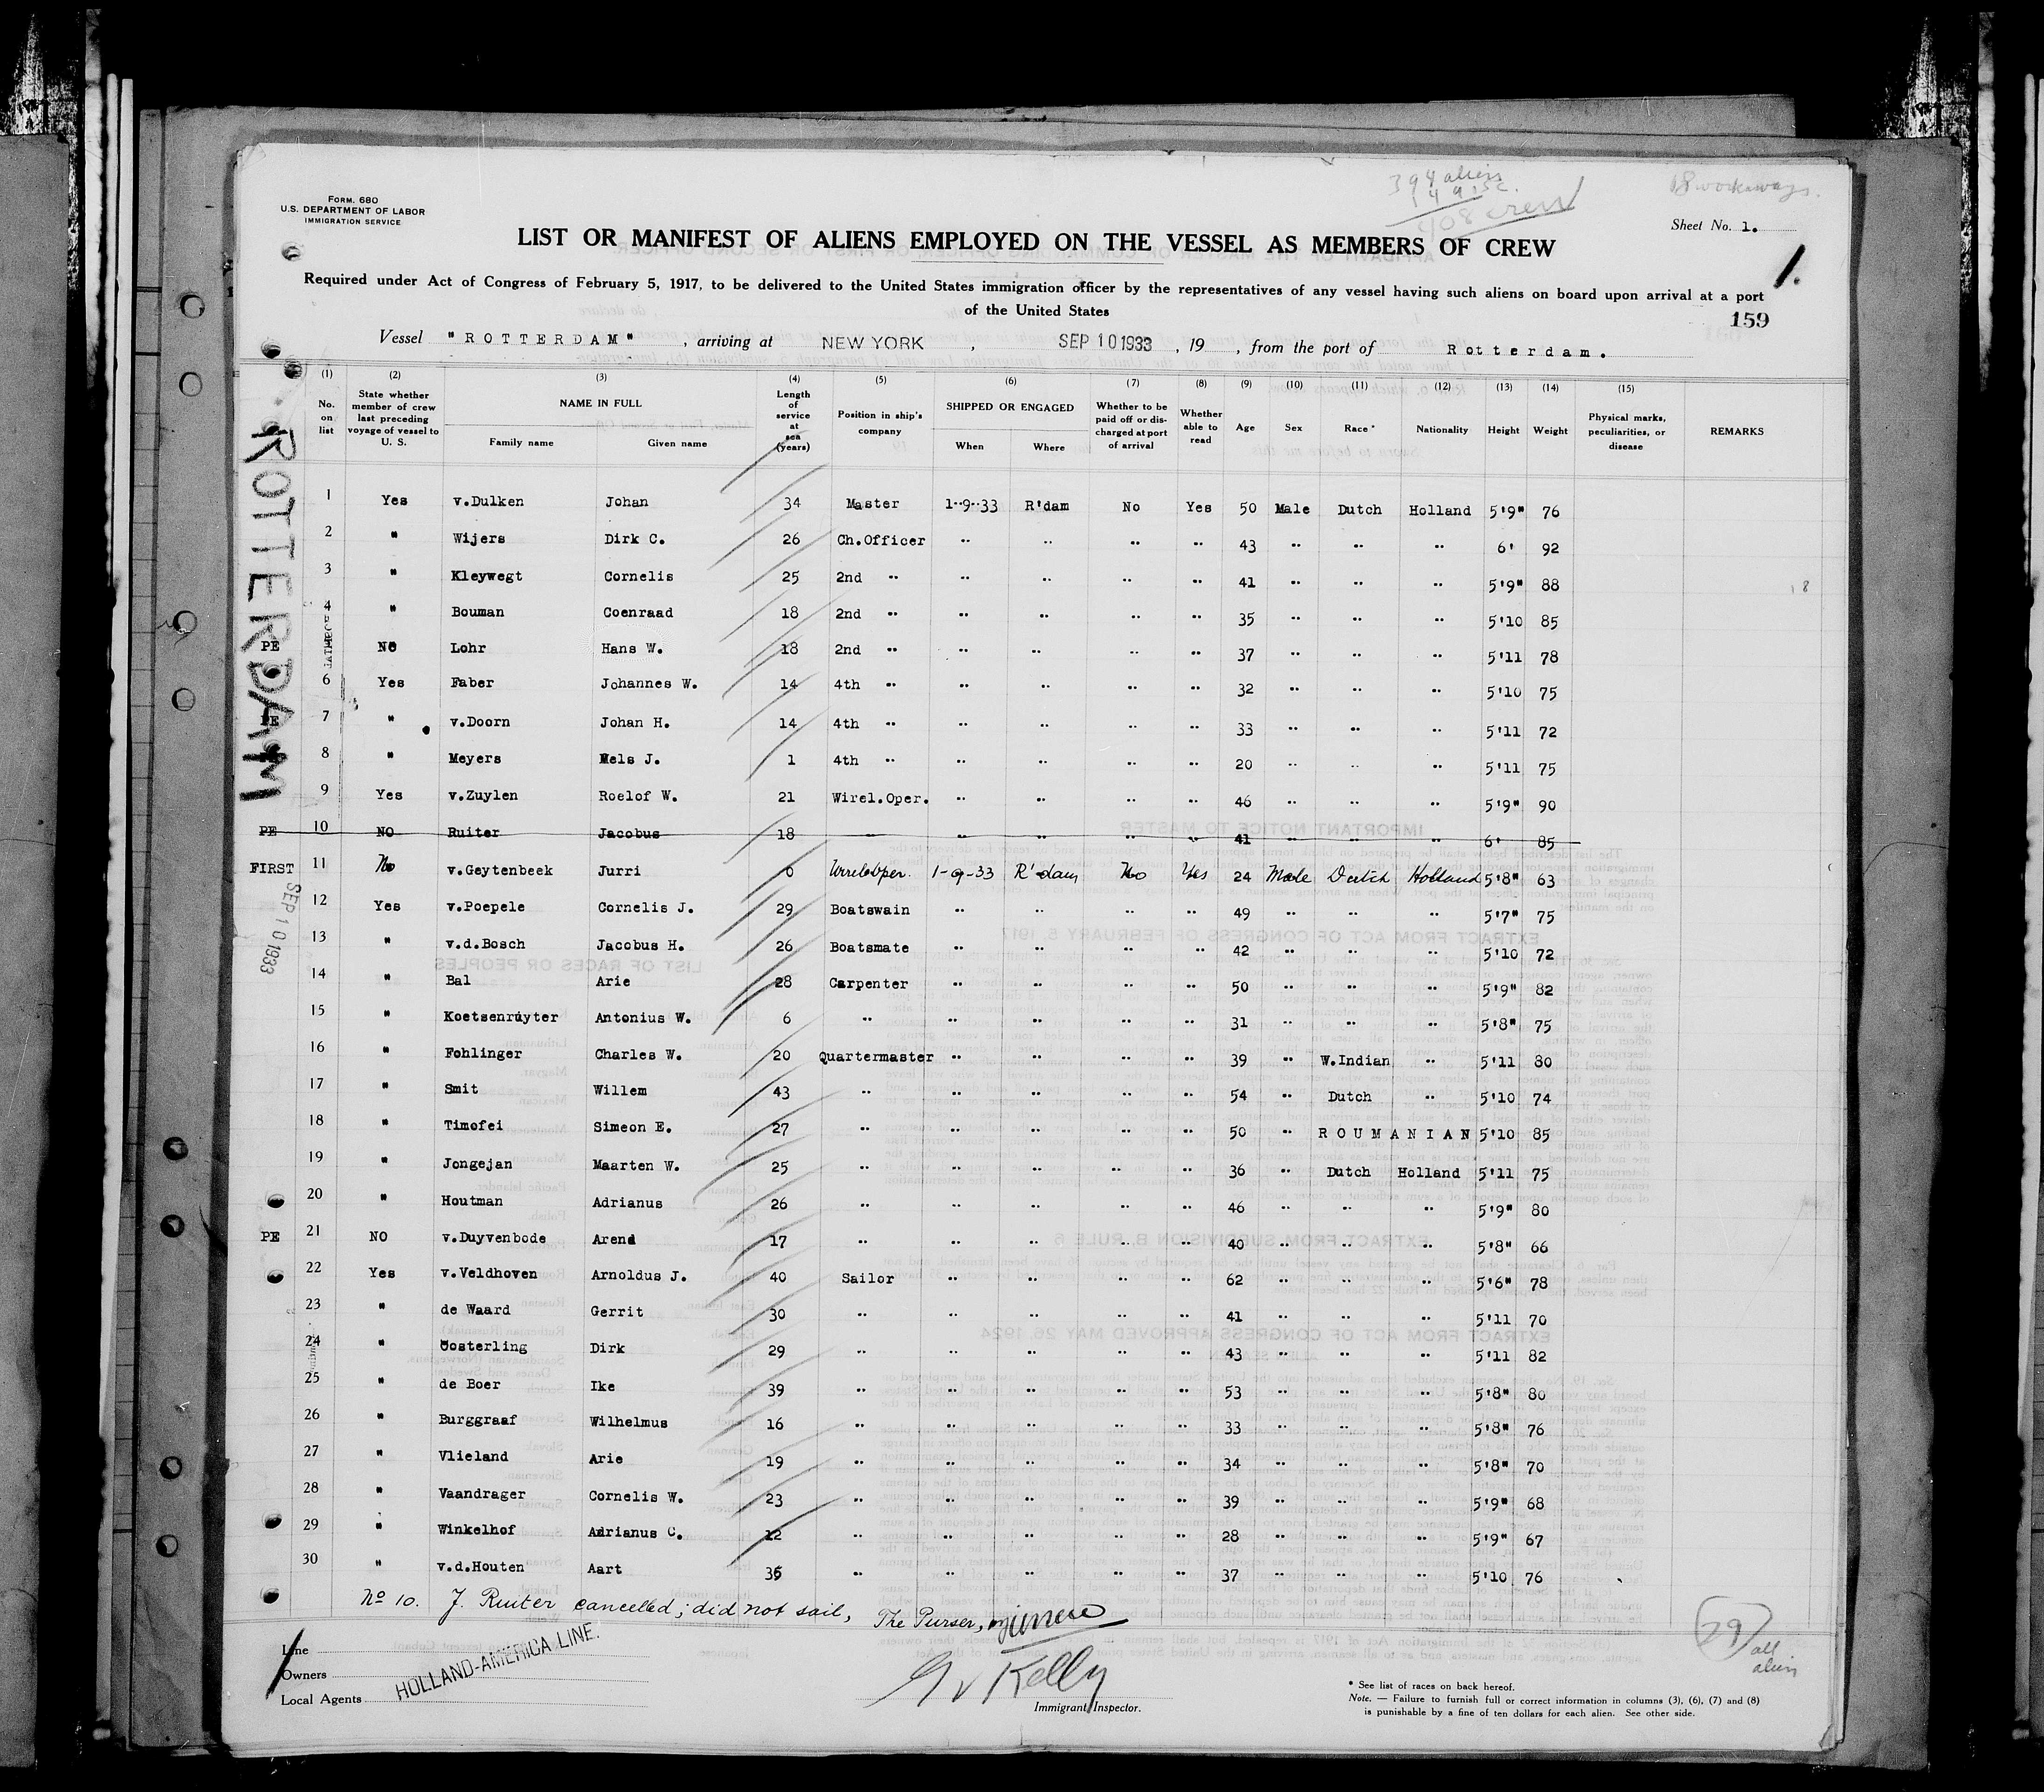 394 aliens
18 workaways.
FORM. 680
U.S. DEPARTMENT OF LABOR
IMMIGRATION SERVICE
Sheet No. 1.
LIST OR MANIFEST OF ALIENS EMPLOYED ON THE VESSEL AS MEMBERS OF CREW
1.
Required under Act of Congress of February 5, 1917, to be delivered to the United States immigration officer by the representatives of any vessel having such aliens on board upon arrival at a port
of the United States
159
Vessel "ROTTERDAM" , arriving at NEW YORK , SEP 10 1933 , 19 , from the port of Rotterdam.
(1) (2) (3) (4) (5) (6) (7) (8) (9) (10) (11) (12) (13) (14) (15)
No. on list State whether member of crew last preceding voyage of vessel to U. S. NAME IN FULL Family name Given name Length of service at sea (years) Position in ship's company SHIPPED OR ENGAGED When Where Whether to be paid off or discharged at port of arrival Whether able to read Age Sex Race * Nationality Height Weight Physical marks, peculiarities, or disease REMARKS
ROTTERDAM
1 Yes v.Dulken Johan 34 Master 1-9-33 R'dam No Yes 50 Male Dutch Holland 5'9" 76
2 " Wijers Dirk C. 26 Ch.Officer " " " " 43 " " " 6' 92
3 " Kleywegt Cornelis 25 2nd " " " " " 41 " " " 5'9" 88
4 " Bouman Coenraad 18 2nd " " " " " 35 " " " 5'10 85
PE NO Lohr Hans W. 18 2nd " " " " " 37 " " " 5'11 78
6 Yes Faber Johannes W. 14 4th " " " " " 32 " " " 5'10 75
PE 7 " v.Doorn Johan H. 14 4th " " " " " 33 " " " 5'11 72
8 " Meyers Mels J. 1 4th " " " " " 20 " " " 5'11 75
9 Yes v.Zuylen Roelof W. 21 Wirel.Oper. " " " " 46 " " " 5'9" 90
PE 10 NO Ruiter Jacobus 18 " " " " 41 " " " 6' 85
FIRST 11 No v.Geytenbeek Jurri 0 Wirel.Oper. 1-9-33 R'dam No Yes 24 Male Dutch Holland 5'8" 63
SEP 10 1933
12 Yes v.Poepele Cornelis J. 29 Boatswain " " " " 49 " " " 5'7" 75
13 " v.d.Bosch Jacobus H. 26 Boatsmate " " " " 42 " " " 5'10 72
14 " Bal Arie 28 Carpenter " " " " 50 " " " 5'9" 82
15 " Koetsenruyter Antonius W. 6 " " " " " 31 " " " 5'8" 75
16 " Fohlinger Charles W. 20 Quartermaster " " " " 39 " W.Indian " 5'11 80
17 " Smit Willem 43 " " " " " 54 " Dutch " 5'10 74
18 " Timofei Simeon E. 27 " " " " " 50 " ROUMANIAN 5'10 85
19 " Jongejan Maarten W. 25 " " " " " 36 " Dutch Holland 5'11 75
20 " Houtman Adrianus 26 " " " " " 46 " " " 5'9" 80
PE 21 NO v.Duyvenbode Arend 17 " " " " " 40 " " " 5'8" 66
22 Yes v.Veldhoven Arnoldus J. 40 Sailor " " " " 62 " " " 5'6" 78
23 " de Waard Gerrit 30 " " " " " 41 " " " 5'11 70
24 " Oosterling Dirk 29 " " " " " 43 " " " 5'11 82
25 " de Boer Ike 39 " " " " " 53 " " " 5'8" 80
26 " Burggraaf Wilhelmus 16 " " " " " 33 " " " 5'8" 76
27 " Vlieland Arie 19 " " " " " 34 " " " 5'8" 70
28 " Vaandrager Cornelis W. 23 " " " " " 39 " " " 5'9" 68
29 " Winkelhof Adrianus C. 12 " " " " " 28 " " " 5'9" 67
30 " v.d.Houten Aart 35 " " " " " 37 " " " 5'10 76
No 10. J. Ruiter cancelled; did not sail, The Purser,
29 all alien
Line
Owners
Local Agents
HOLLAND-AMERICA LINE.
Kelly
Immigrant Inspector.
* See list of races on back hereof.
Note. — Failure to furnish full or correct information in columns (3), (6), (7) and (8)
is punishable by a fine of ten dollars for each alien. See other side.